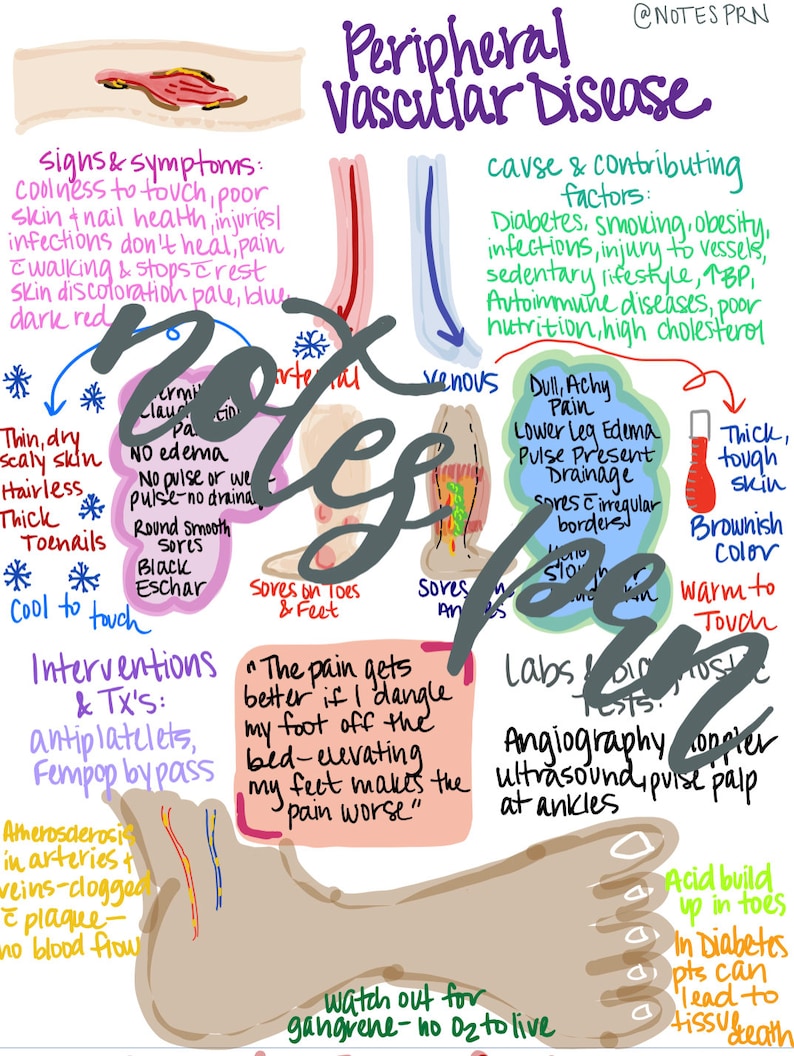 @NOTESPRN
Peripheral
Vascular Disease
signs & symptoms:
coolness to touch, poor
skin & nail health, injuries/
infections don't heal, pain
c̄ walking & stops c̄ rest
skin discoloration pale, blue,
dark red
cause & contributing
factors:
Diabetes, smoking, obesity,
infections, injury to vessels,
sedentary lifestyle, ↑BP,
Autoimmune diseases, poor
nutrition, high cholesterol
notes
prn
Arterial
venous
Thin, dry
scaly skin
Hairless
Thick
Toenails
Cool to touch
Pain
NO edema
No pulse or weak
pulse-no drainage
Round smooth
sores
Black
Eschar
Sores on Toes
& Feet
Sores on
Ankles
Dull, Achy
Pain
Lower Leg Edema
Pulse Present
Drainage
sores c̄ irregular
borders
Thick,
tough
skin
Brownish
color
warm to
Touch
Interventions
& Tx's:
antiplatelets,
Fempop bypass
"The pain gets
better if I dangle
my foot off the
bed-elevating
my feet makes the
pain worse"
Labs & Diagnostic
Tests:
Angiography, Doppler
ultrasound, pulse palp
at ankles
Atherosclerosis
in arteries &
veins-clogged
c̄ plaque-
no blood flow
Acid build
up in toes
In Diabetes
pts can
lead to
tissue
death
watch out for
gangrene-no O2 to live